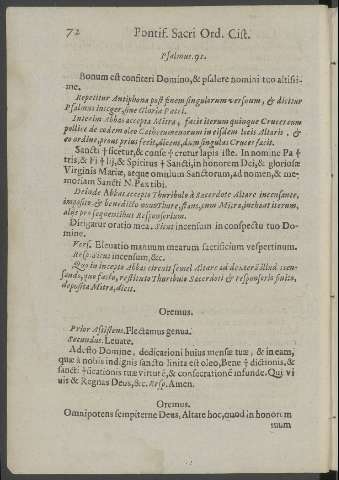 72 Pontif. Sacri Ord. Cist.
Psalmus. 91.
Bonum est confiteri Domino, & psalere nomini tuo altissi-
me.
Repetitur Antiphona post finem singulorum versuum, & dicitur
Psalmus integer, sine Gloria Patri.
Interim Abbas accepta Mitra, facit iterum quinque Cruces cum
pollice de eodem oleo Cathecumenorum in eisdem locis Altaris, &
eo ordine, prout prius fecit, dicens, dum singulas Cruces facit.
Sancti † ficetur, & conse † cretur lapis iste. In nomine Pa †
tris, & Fi † lij, & Spiritus † Sancti, in honorem Dei, & gloriosæ
Virginis Mariæ, atque omnium Sanctorum, ad nomen, & me-
moriam Sancti N. Pax tibi.
Deinde Abbas accepto Thuribulo à Sacerdote Altare incensante,
imposito, & benedicto nouo Thure, stans, cum Mitra, inchoat iterum,
alijs prosequentibus Responsorium.
Dirigatur oratio mea. Sicut incensum in conspectu tuo Do-
mine.
Vers. Eleuatio manuum mearum sacrificium vespertinum.
Resp. Sicut incensum, &c.
Quo in incepto Abbas circuit semel Altare ad dexterã illud incen-
sando, quo facto, restituto Thuribulo Sacerdoti & responsorio finito,
deposita Mitra, dicit.
Oremus.
Prior Assistens. Flectamus genua.
Secundus. Leuate.
Adesto Domine, dedicationi huius mensæ tuæ, & in eam,
quæ à nobis indignis sancto linita est oleo, Bene † dictionis, &
sancti † ficationis tuæ virtutẽ, & consecrationẽ infunde. Qui vi
uis & Regnas Deus, &c. Resp. Amen.
Oremus.
Omnipotens sempiterne Deus, Altare hoc, quod in honorem
tuum